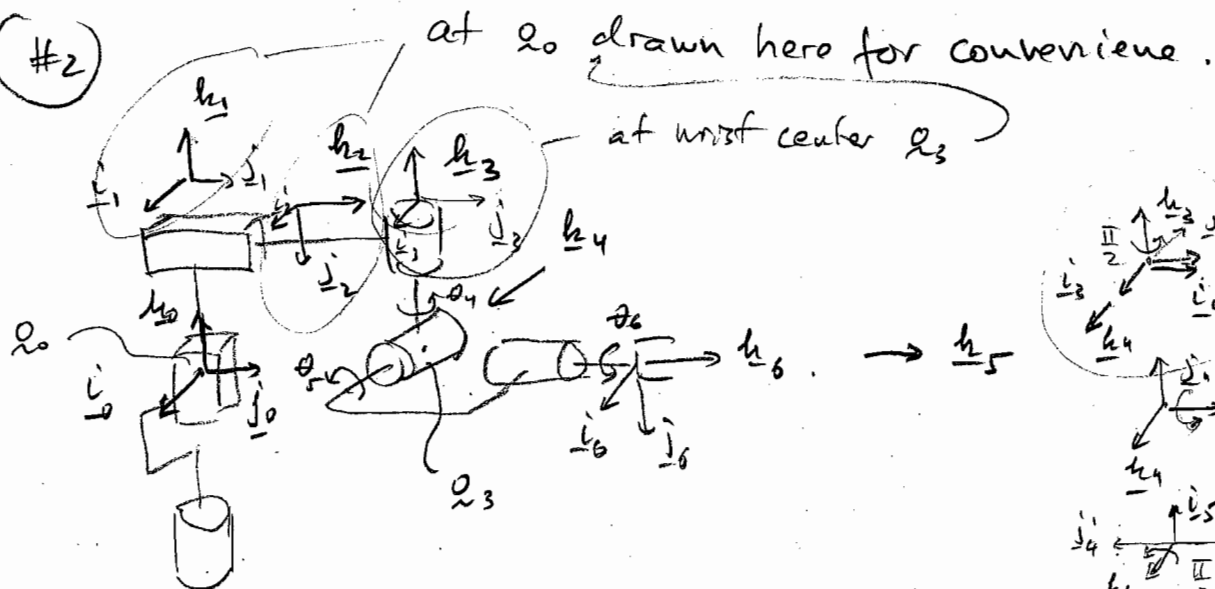 #2
at o₀ drawn here for conveniene.
at wrist center o₃
k₁
i₁
j₁
k₂
j₂
k₃
i₃
j₃
k₄
k₀
o₀
i₀
j₀
θ₄
θ₅
θ₆
k₆
→ k₅
i₆
j₆
o₃
k₃
π/2
i₃
k₄
k₄
i₅
j₄